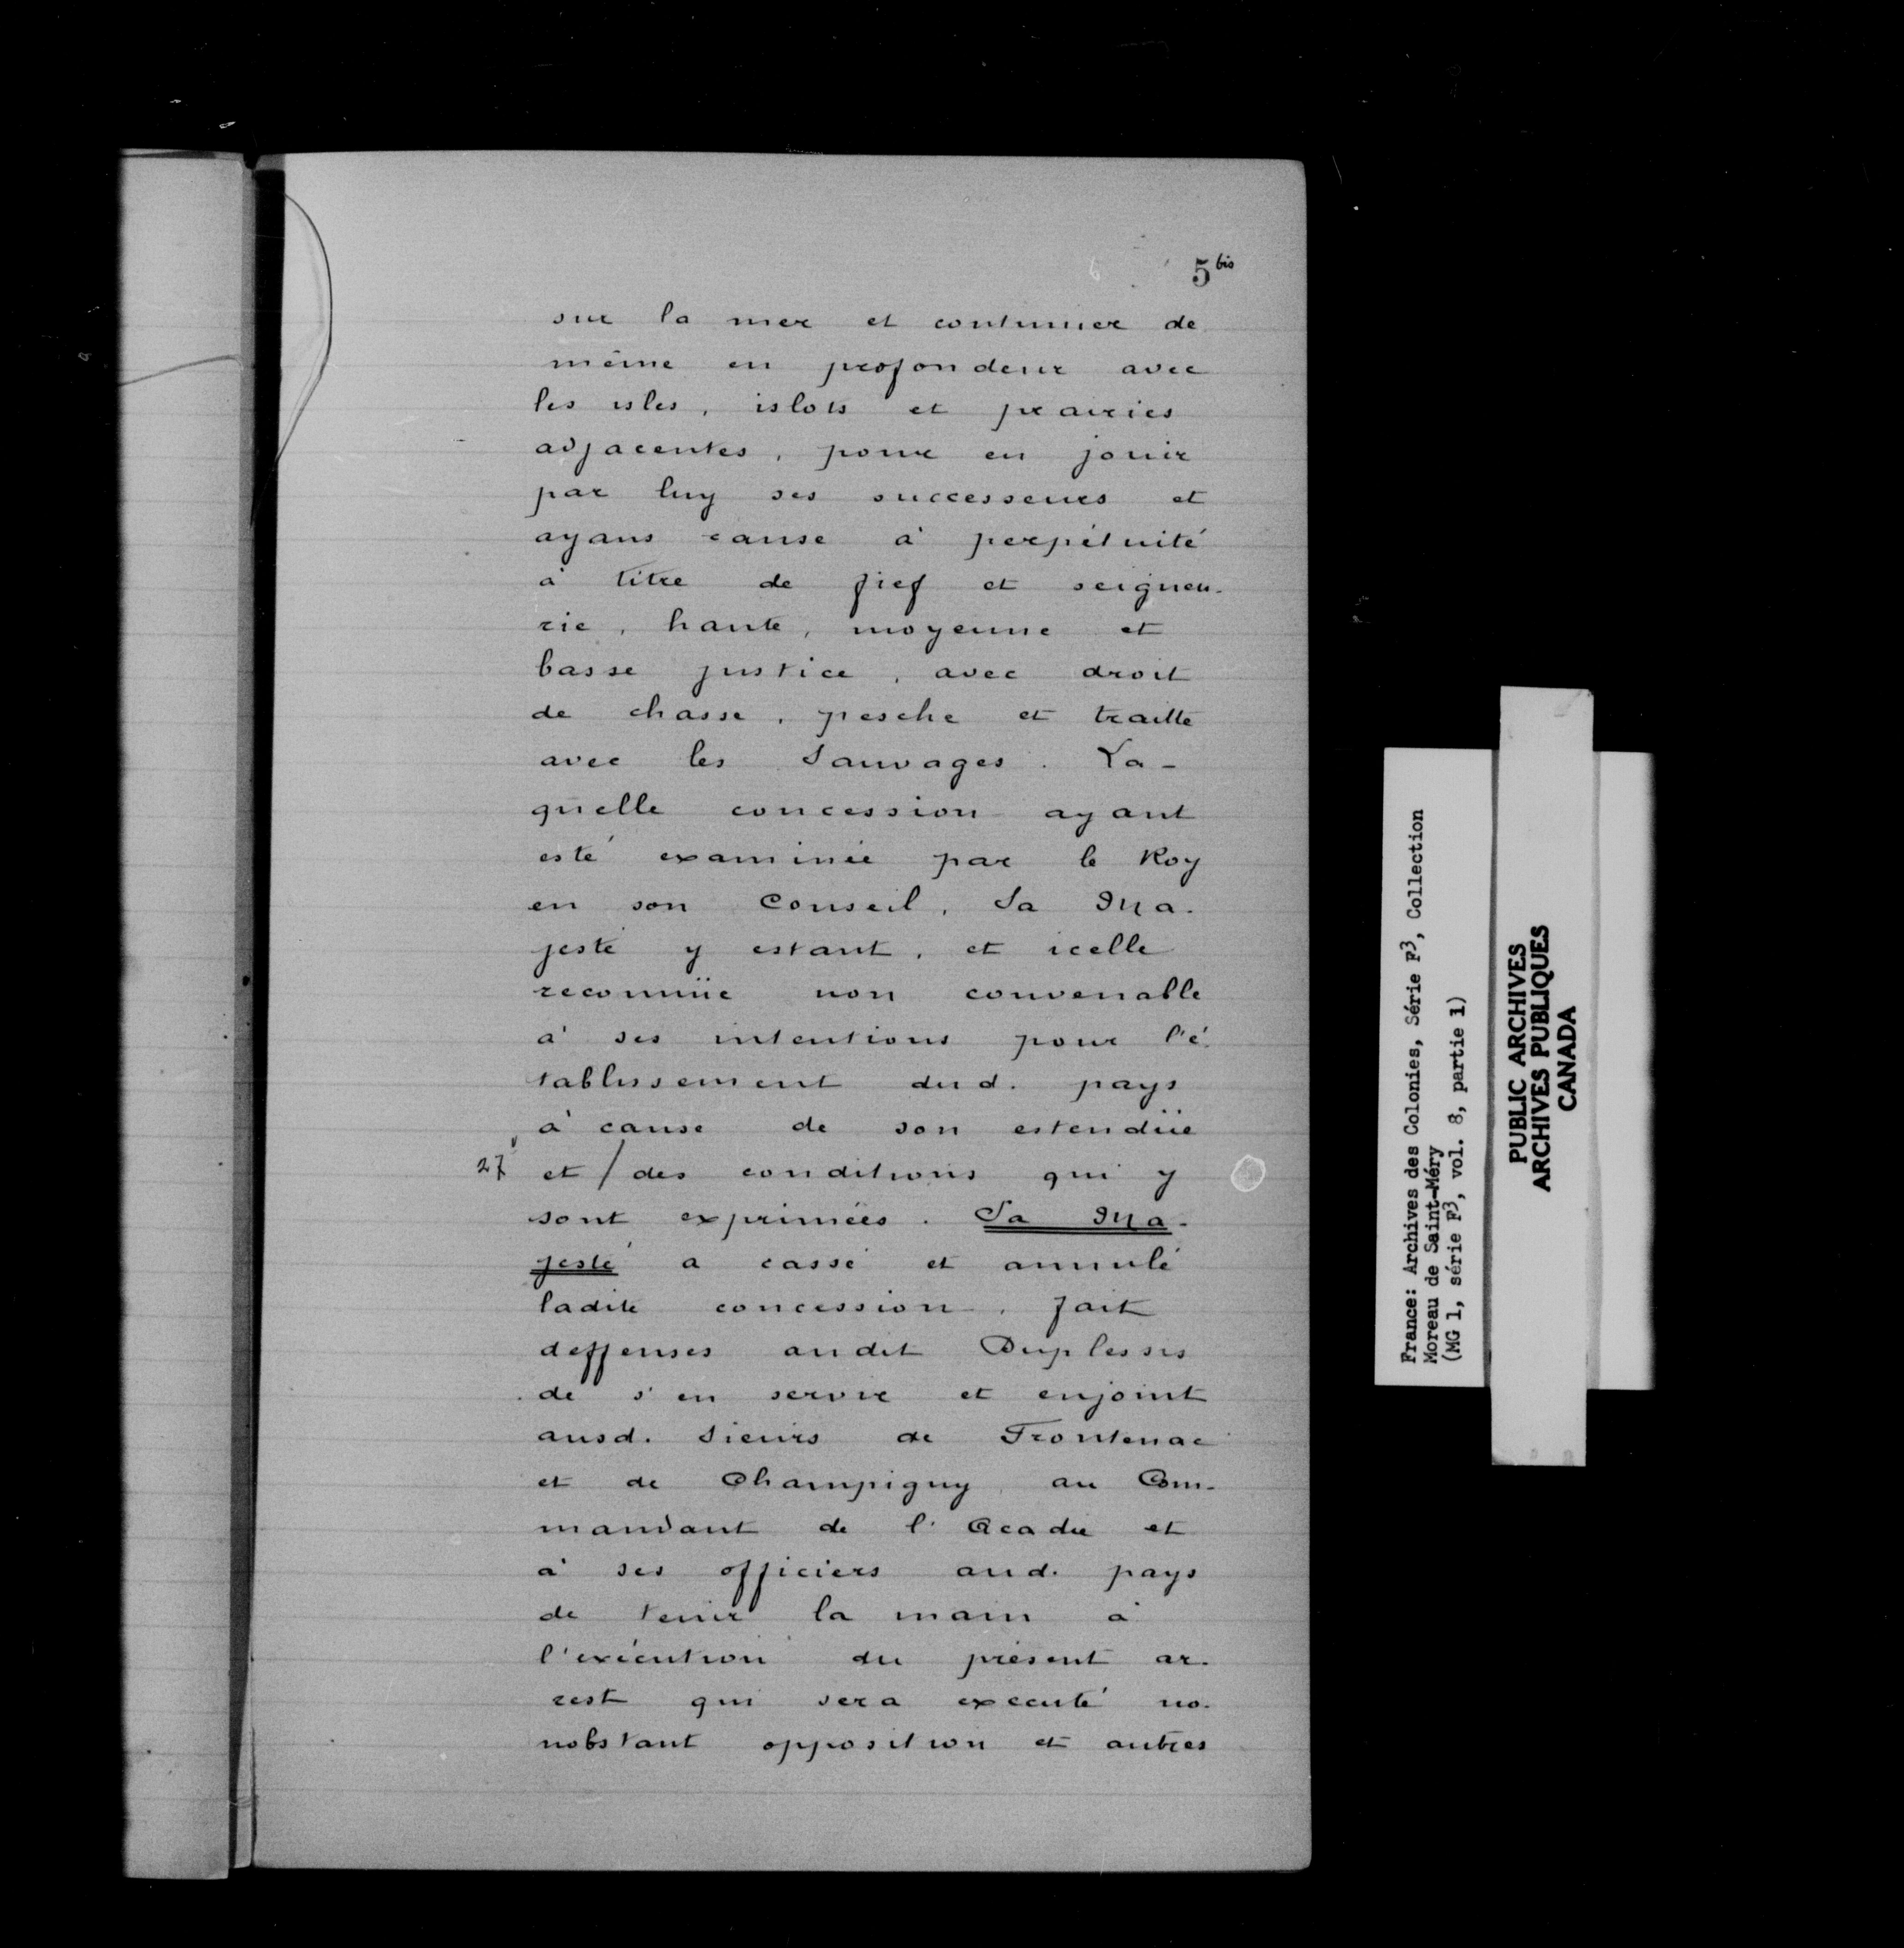 5 bis
sur la mer et continuer de
même en profondeur avec
les isles, islots et prairies
adjacentes, pour en jouir
par luy ses successeurs et
ayans cause à perpétuité
à titre de fief et seigneu-
rie, haute, moyenne et
basse justice, avec droit
de chasse, pesche et traitte
avec les Sauvages. La-
quelle concession ayant
esté examinée par le Roy
en son Conseil, Sa Ma-
jesté y estant, et icelle
reconnüe non convenable
à ses intentions pour l'é-
tablissement dud. pays
à cause de son estendüe
27 et / des conditions qui y
sont exprimées. Sa Ma-
jesté a cassé et annulé
ladite concession, fait
deffenses audit Duplessis
de s'en servir et enjoint
ausd. Sieurs de Frontenac
et de Champigny, au Com-
mandant de l'Acadie et
à ses officiers aud. pays
de tenir la main à
l'exécution du présent ar-
rest qui sera executé no-
nobstant opposition et autres
France: Archives des Colonies, Série F³, Collection
Moreau de Saint-Méry
(MG 1, série F³, vol. 8, partie 1)
PUBLIC ARCHIVES
ARCHIVES PUBLIQUES
CANADA